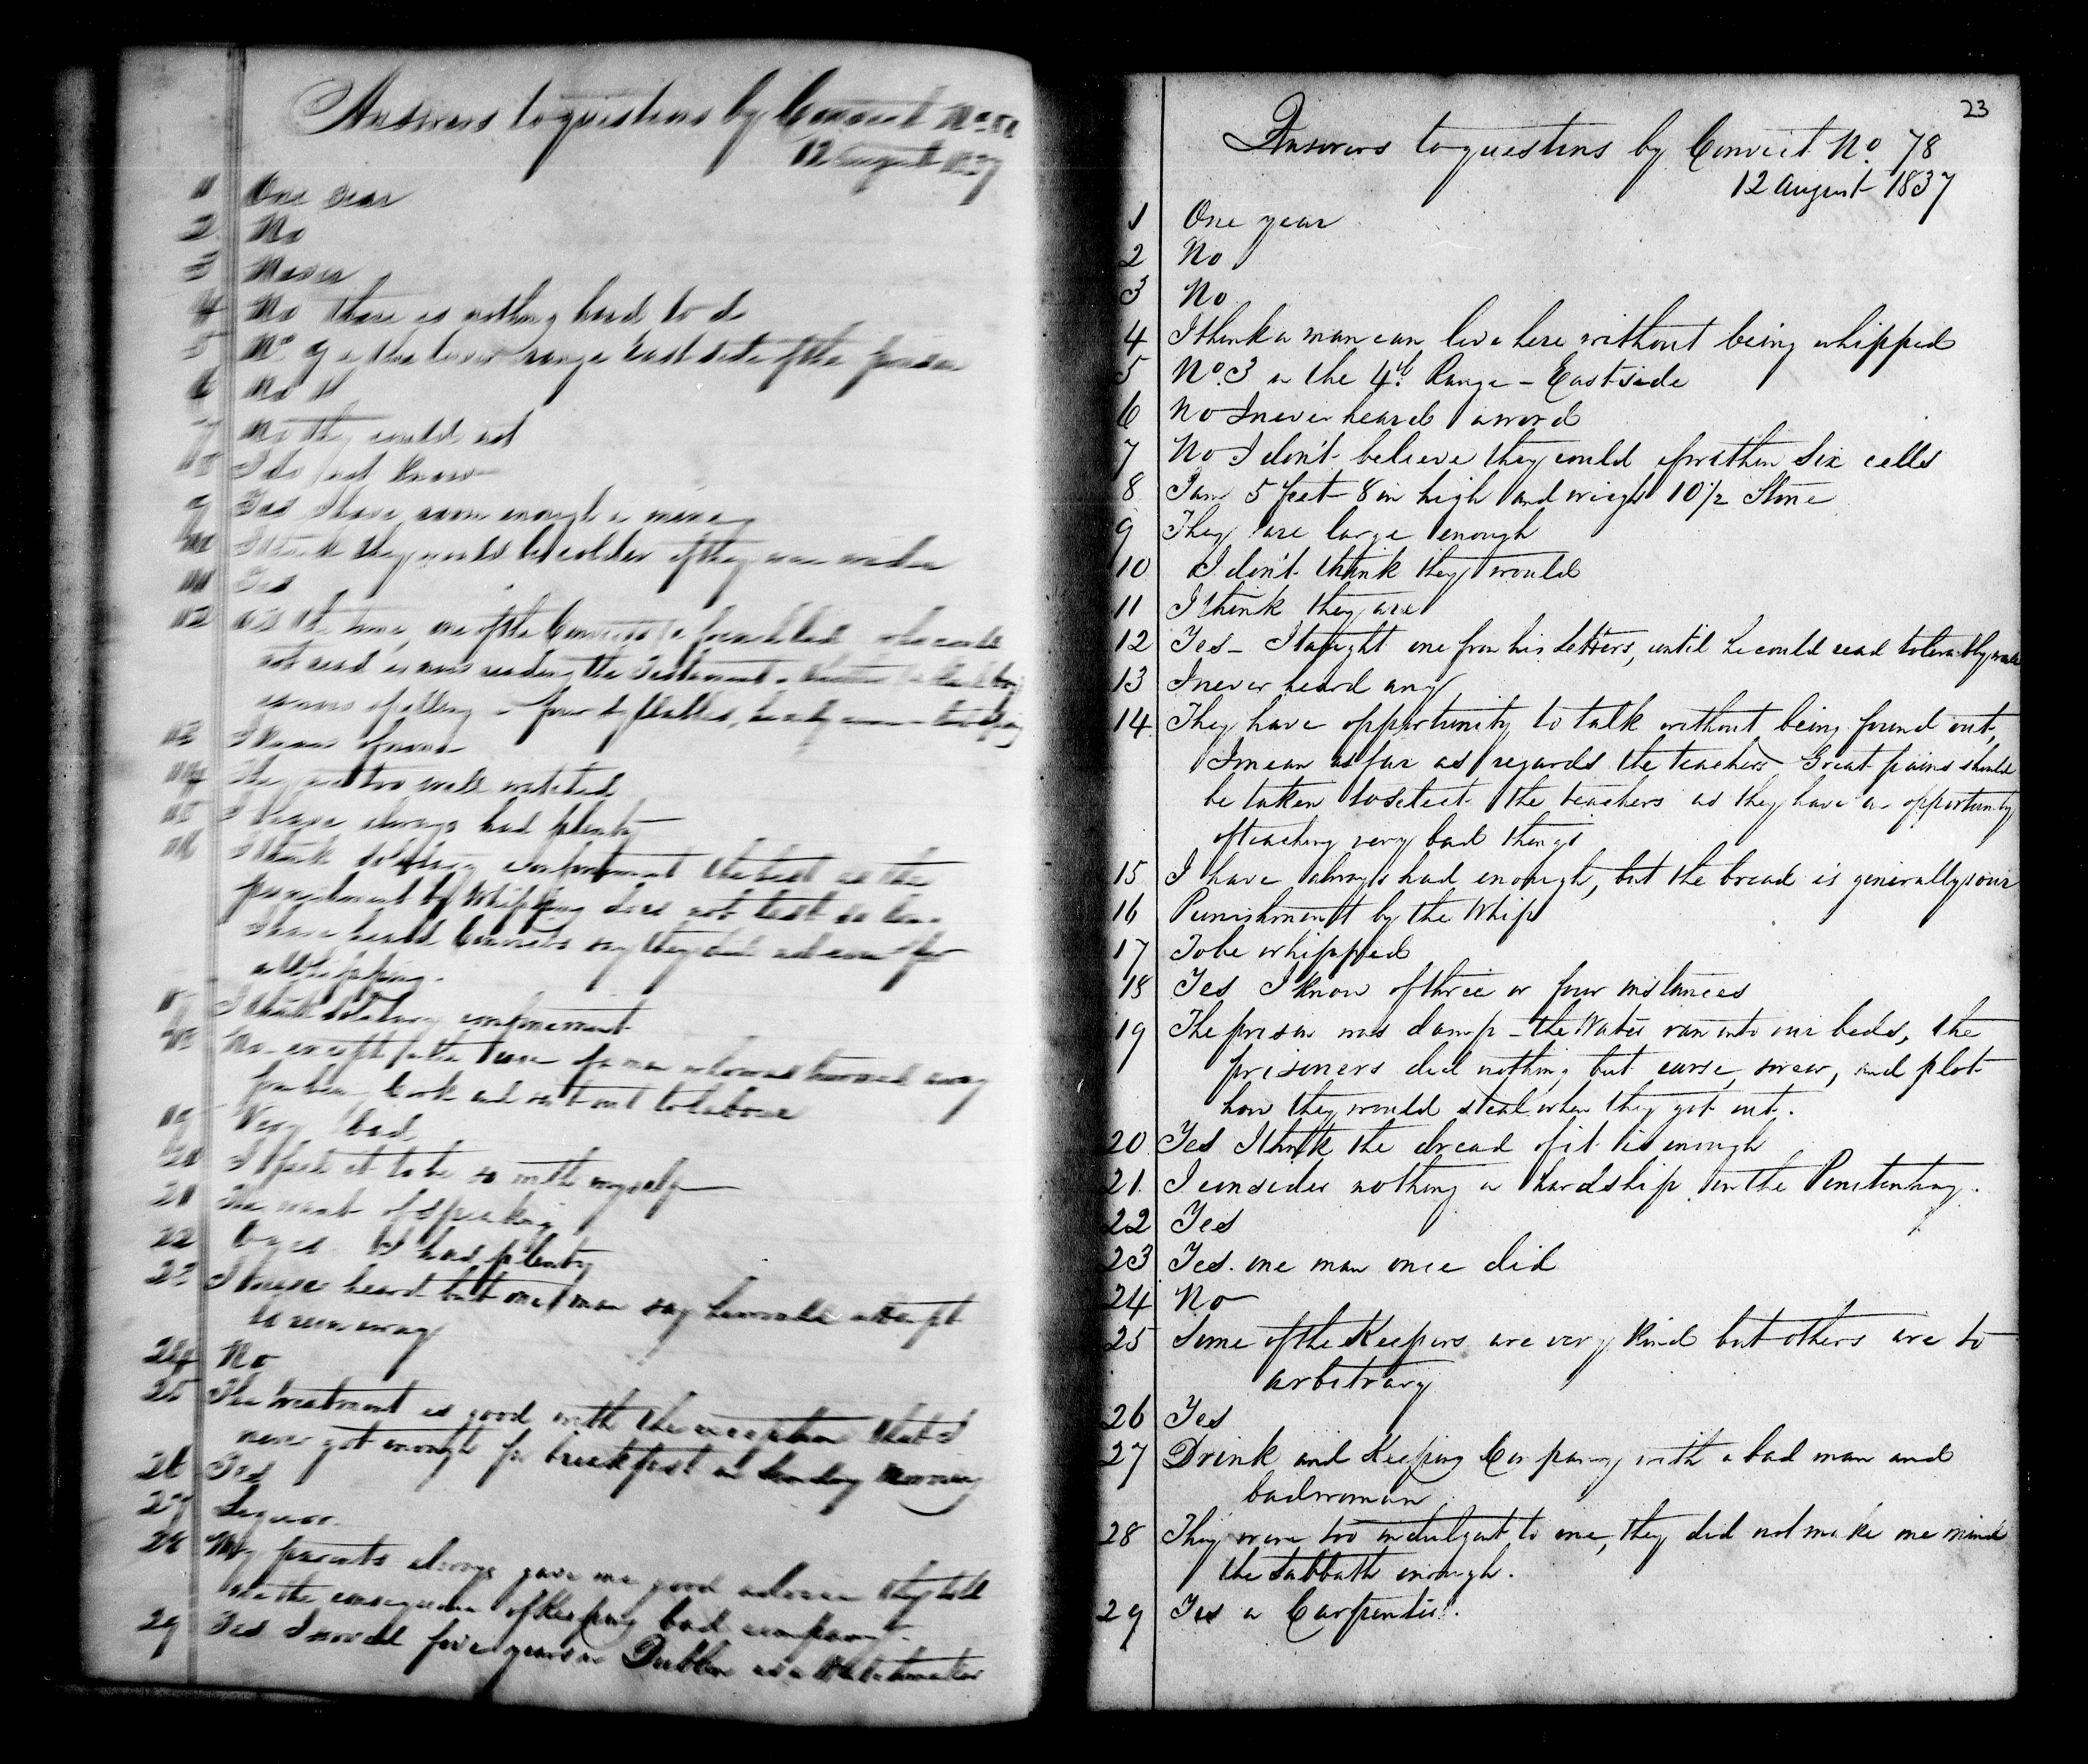 Answers to questions by Convict No
12 August 1837
1 One year
2 No
3 Never
4 No there is nothing hard to do
5 No 9 in the lower range East side of the prison
6 No
7 No they could not
8 I do not know
9 Yes I have room enough in mine
10 I think they would be colder if they were wider
11 Yes
12 at the time, one of the Convicts who could
not read is now reading the Testament
is now spelling
13 I know of none
14 They are too well watched
15 I have always had plenty
16 I think solitary confinement the best as the
punishment by Whipping does not last so long
I have heard Convicts say they did not care for
a Whipping.
17 I think solitary confinement
18 No except in the case of a man who was turned away
from being Cook and sent out to labour
19 Very bad
20 I feel it to be so with myself
21 The want of speaking
22 O yes I had plenty
23 I never heard but one man say he would attempt
to run away
24 No
25 The treatment is good with the exception that I
never got enough for breakfast on Sunday Morning
26 Yes
27 Liquor.
28 My parents always gave me good advice they told
me the consequence of keeping bad company.
29 Yes I served five years in Dublin as a Watchmaker
23
Answers to questions by Convict No. 78
12 August 1837
1 One year
2 No
3 No
4 I think a man can live here without being whipped
5 No. 3 in the 4th Range - East side
6 No I never heard a word
7 No I don't believe they could for them six cells
8 I am 5 feet 8 in high and weigh 10 1/2 Stone
9 They are large enough
10 I don't think they would
11 I think they are
12 Yes - I taught one from his letters, until he could read tolerably well
13 I never heard any
14 They have opportunity to talk without being found out,
I mean as far as regards the teachers Great pains should
be taken to select the teachers as they have an opportunity
of teaching very bad things
15 I have always had enough, but the bread is generally sour
16 Punishment by the Whip
17 To be whipped
18 Yes I know of three or four instances
19 The prison was damp - the Water ran into our beds, the
prisoners did nothing but curse, swear, and plot
how they would steal when they got out.
20 Yes I think the dread of it is enough
21 I consider nothing a hardship in the Penitentiary.
22 Yes
23 Yes. one man once did
24 No
25 Some of the Keepers are very kind but others are to
arbitrary
26 Yes
27 Drink and Keeping Company with a bad man and
bad woman
28 They were too indulgent to me, they did not make me mind
the Sabbath enough.
29 Yes a Carpenter.